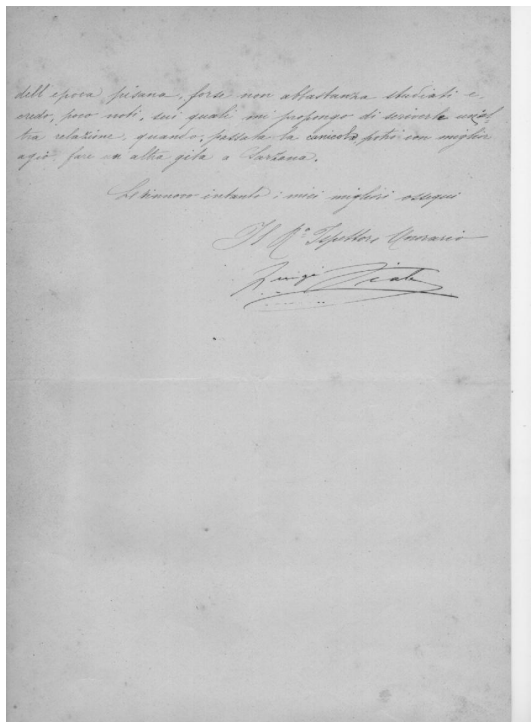 dell'epoca pisana, forse non abbastanza studiati e,
credo, poco noti, sui quali mi propongo di scriverle un'al-
tra relazione, quando, passata la canicola, potrò con miglior
agio, fare un altra gita a Sarzana.
Le rinnovo intanto i miei migliori ossequi
Il R.º Ispettore Onorario
Luigi